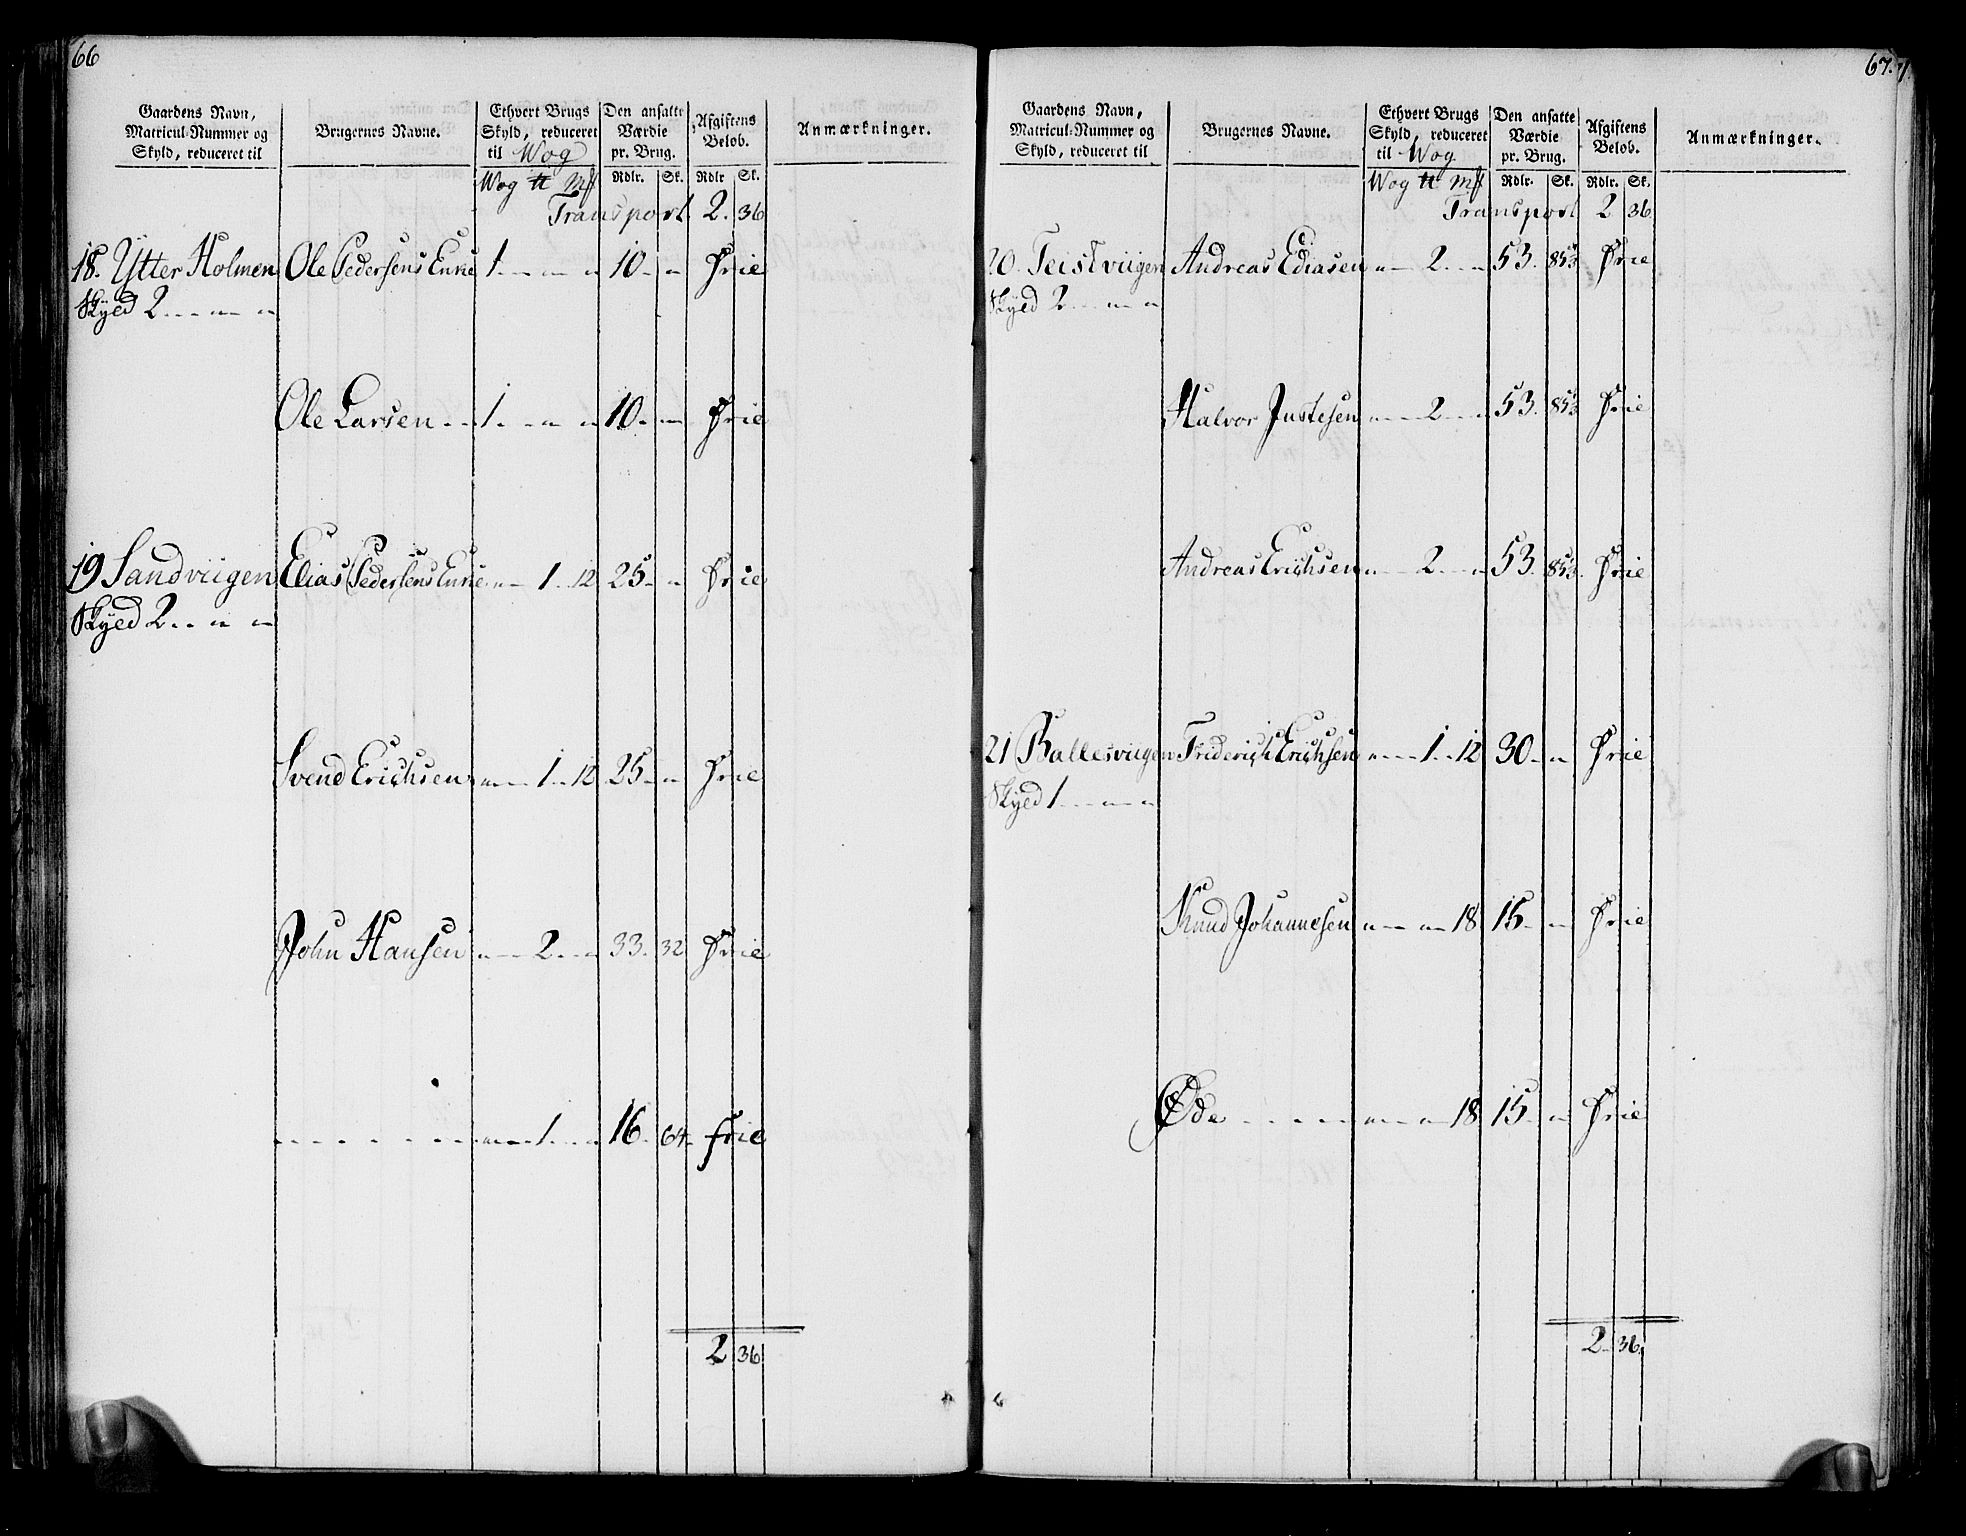 66
Gaardens Navn, Matricul-Nummer og Skyld, reduceret til | Brugernes Navne. | Ethvert Brugs Skyld, reduceret til Wog | Den ansatte Værdie pr. Brug. | Afgiftens Beløb. | Anmærkninger.
Wog ℔ Mk | Rdlr. Sk. | Rdlr Sk.
Transport 2. 36
18. Ytter Holmen Ole Pedersens Enke 1 - - - 10 - - Frie
Skyld 2 - - -
Ole Larsen - - 1 - - - 10 - - Frie
19 Sandviigen Elias Pedersens Enke - - 1 - 12 25 - - Frie
Skyld 2 - - -
Svend Erichsen - - 1 - 12 25 - - Frie
John Hansen - - 2 - - 33. 32 Frie
- - - - - - - 1 - - 16. 64 - frie
2 36
67.
Gaardens Navn, Matricul-Nummer og Skyld, reduceret til | Brugernes Navne. | Ethvert Brugs Skyld, reduceret til Wog | Den ansatte Værdie pr. Brug. | Afgiftens Beløb. | Anmærkninger.
Wog ℔ Mk | Rdlr. Sk. | Rdlr. Sk.
Transport 2 36
20. Teistviigen Andreas Ediasen - - 2 - - 53. 85⅓ Frie
Skyld 2 - - -
Halvor Justesen - - 2 - - 53. 85⅓ Frie
Andreas Erichsen - - 2 - - 53. 85⅓. Frie
21 Ballesviigen Friderich Erichsen - - 1 - 12 30 - - Frie
Skyld 1 - - -
Knud Johannesen - - - 18 15 - - Frie
Øde - - - - - - 18 15 - - Frie
2 - 36.